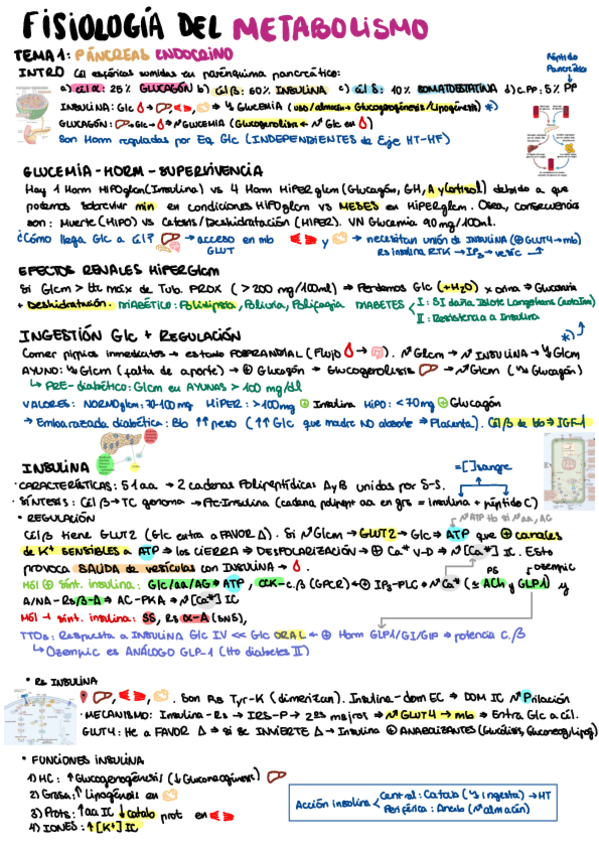 FISIOLOGÍA DEL METABOLISMO
TEMA 1: PÁNCREAS ENDOCRINO
Péptido
Pancreático
INTRO Cél esféricas sumidas en parénquima pancreático:
a) cél α: 25% GLUCAGÓN b) Cél β: 60% INSULINA c) cél δ: 10% SOMATOSTATINA d) C.PP: 5% PP
INSULINA: Glc → ⇒ ↘ GLUCEMIA (uso/almacén → Glucogenogénesis/Lipogénesis) *)
GLUCAGÓN: → Glc → ⇒ ↗ GLUCEMIA (Glucogenolisis ← ↗ Glc en )
Son Horm reguladas por Eq. Glc (INDEPENDIENTES de Eje HT-HF)
GLUCEMIA - HORM - SUPERVIVENCIA
Hay 1 Horm HIPOglcm (Insulina) vs 4 Horm HIPERglcm (Glucagón, GH, A y Cortisol) debido a que
podemos sobrevivir min en condiciones HIPOglcm vs MESES en HIPERglcm. Osea, consecuencias
son: Muerte (HIPO) vs Cetosis/Deshidratación (HIPER). VN Glucemia 90 mg/100ml.
¿Cómo llega Glc a Cél? → acceso en mb y → necesitan unión de INSULINA (⊕ GLUT4 → mb)
GLUT
Rs insulina RTK → IP₃ → vesíc
EFECTOS RENALES HIPERGlcm
Si Glcm > Us máx de Tub. PROX (>200 mg/100ml) ⇒ Perdemos Glc (+H₂O) x orina ⇒ Glucosuria
+ Deshidratación. DIABÉTICO: Polidipsia, Poliuria, Polifagia DIABETES
I: SI daña Islote Langerhans
II: Resistencia a Insulina
INGESTIÓN Glc + REGULACIÓN
*)
Comer picos inmediatos → estado POSPRANDIAL (Flujo → ). ↗ Glcm → ↗ INSULINA → ↘ Glcm
AYUNO: ↘ Glcm (falta de aporte) → ⊕ Glucagón → Glucogenolisis → ↗ Glcm (↘ Glucagón)
↳ PRE-diabético: Glcm en AYUNAS > 100 mg/dl
VALORES: NORMOglcm: 70-100 mg HIPER: >100mg ⊕ Insulina HIPO: <70mg ⊕ Glucagón
→ Embarazada diabética: Bb ↑↑ peso (↑↑ Glc que madre NO absorbe → Placenta). Cél β de bb → IGF-1
INSULINA
= [ ] sangre
· CARACTERÍSTICAS: 51 aa → 2 cadenas Polipeptídicas A y B unidas por S-S.
· SÍNTESIS: Cél β → TC genoma → Pc-Insulina (cadena polipept aa en grs = insulina + péptido C)
• REGULACIÓN
↗ ATP tb si ↗ aa, AG
Cél β tiene GLUT2 (Glc entra a FAVOR Δ). Si ↗ Glcm → GLUT2 → Glc → ATP que ⊕ canales
de K⁺ SENSIBLES a ATP ⇒ los CIERRA ⇒ DESPOLARIZACIÓN → ⊕ Ca⁺² V-D ⇒ ↗ [Ca⁺²] IC. Esto
provoca SALIDA de vesículas con INSULINA → .
PS
ozempic
Mc1 ⊕ sínt. insulina: Glc/aa/AG → ATP, CCK-c.β (GPCR) ← ⊕ IP₃-PLC → ↗ Ca⁺² (≈ ACh y GLP1) y
A/NA-Rs β-A ⇒ AC-PKA ⇒ ↗ [Ca⁺²] IC
Mc1 - sínt. insulina: SS, Rs α-A (SNS),
TTOs: Respuesta a INSULINA Glc IV << Glc ORAL ← ⊕ Horm GLP1/GI/GIP ⇒ potencia C.β
↳ Ozempic es ANÁLOGO GLP-1 (tto diabetes II)
• Rs INSULINA
, , . Son Rs Tyr-K (dimerizan). Insulina-dom EC ⇒ DOM IC ↗ P.rilación
· MECANISMO: Insulina-Rs → IRS-P → 2ºs msjros ⇒ ↗ GLUT4 → mb ⇒ Entra Glc a Cél.
GLUT4: Hc a FAVOR Δ ⇒ si se INVIERTE Δ → Insulina ⊕ ANABOLIZANTES (Glucólisis, Gluconeog/Lipog)
• FUNCIONES INSULINA
1) HC: ↑ Glucogenogénesis (↓ Gluconeogénesis)
2) Grasa: ↑ Lipogénesis en
3) Prots: ↑ aa IC ↓ catabo prot en
4) IONES: ↑ [K⁺] IC
Acción insulina
Central: Catab (↘ ingesta) → HT
Periférica: Anabo (↗ almacén)